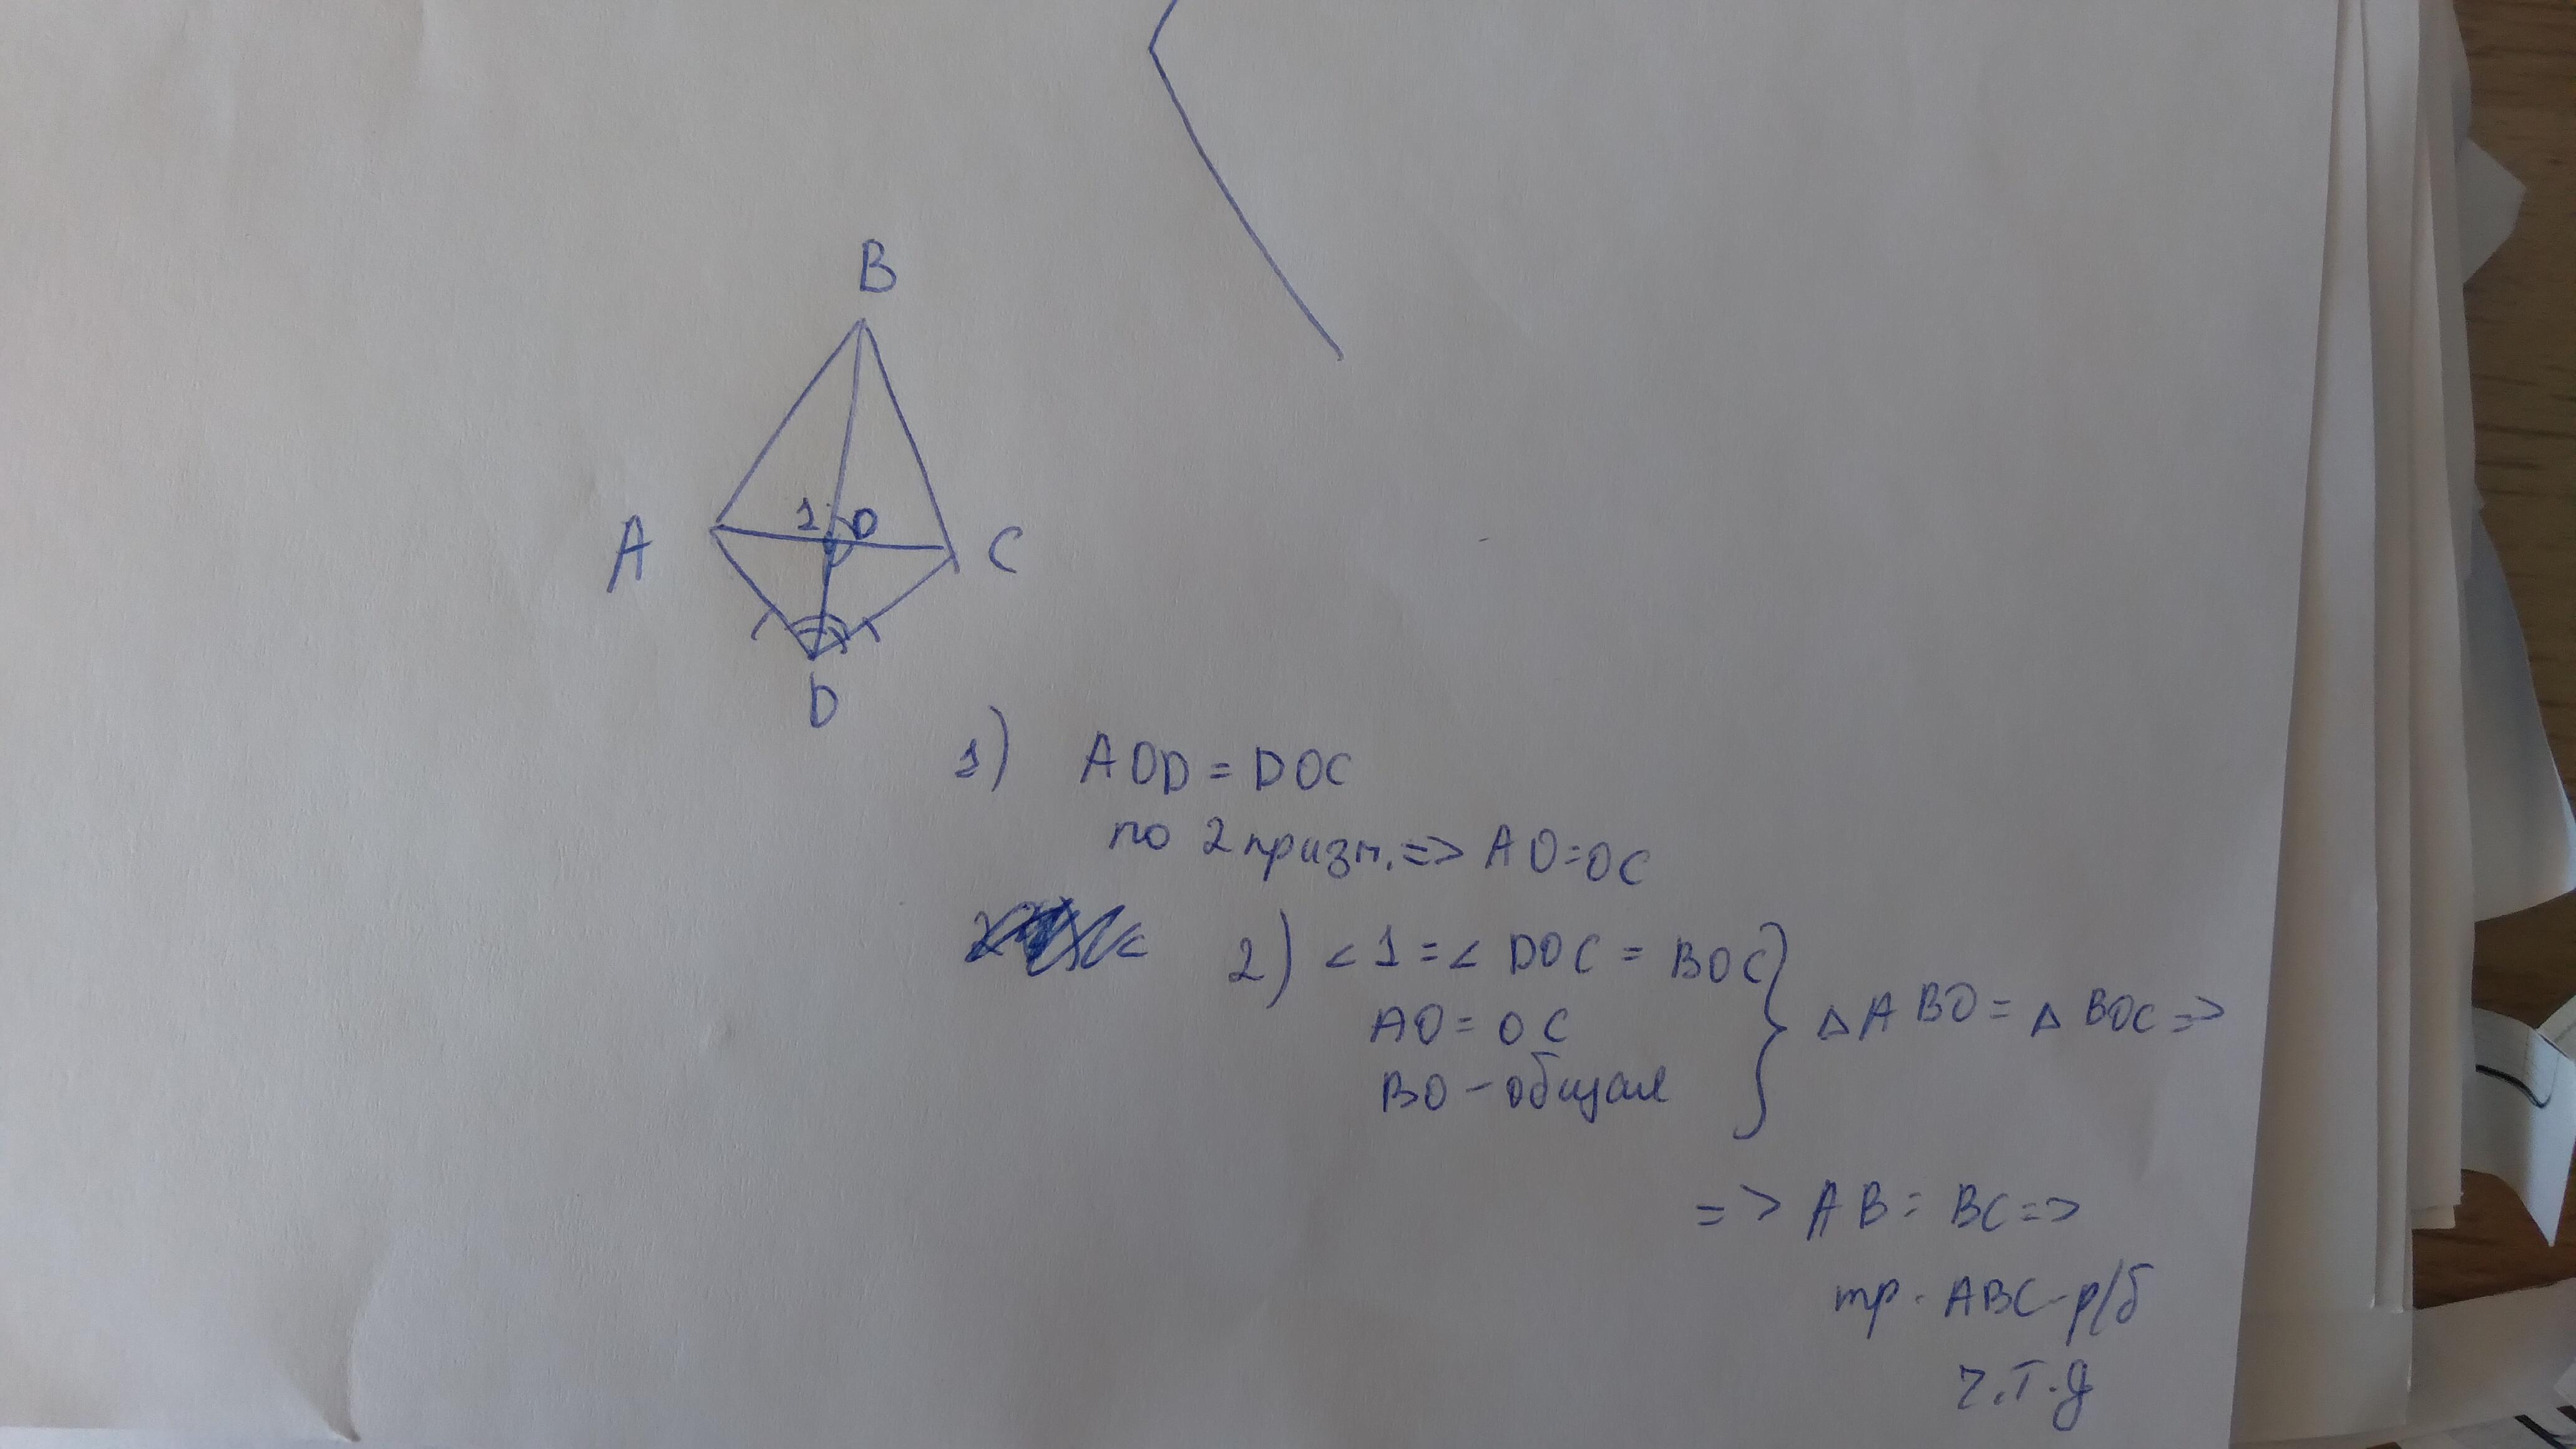 B
1 O
A C
D
1) AOD = DOC
по 2 призн. => AO=OC
2) < 1 = < DOC = BOC
AO = OC
BO - общая
} △ ABO = △ BOC =>
=> AB = BC =>
тр. ABC - р/б
ч.т.д